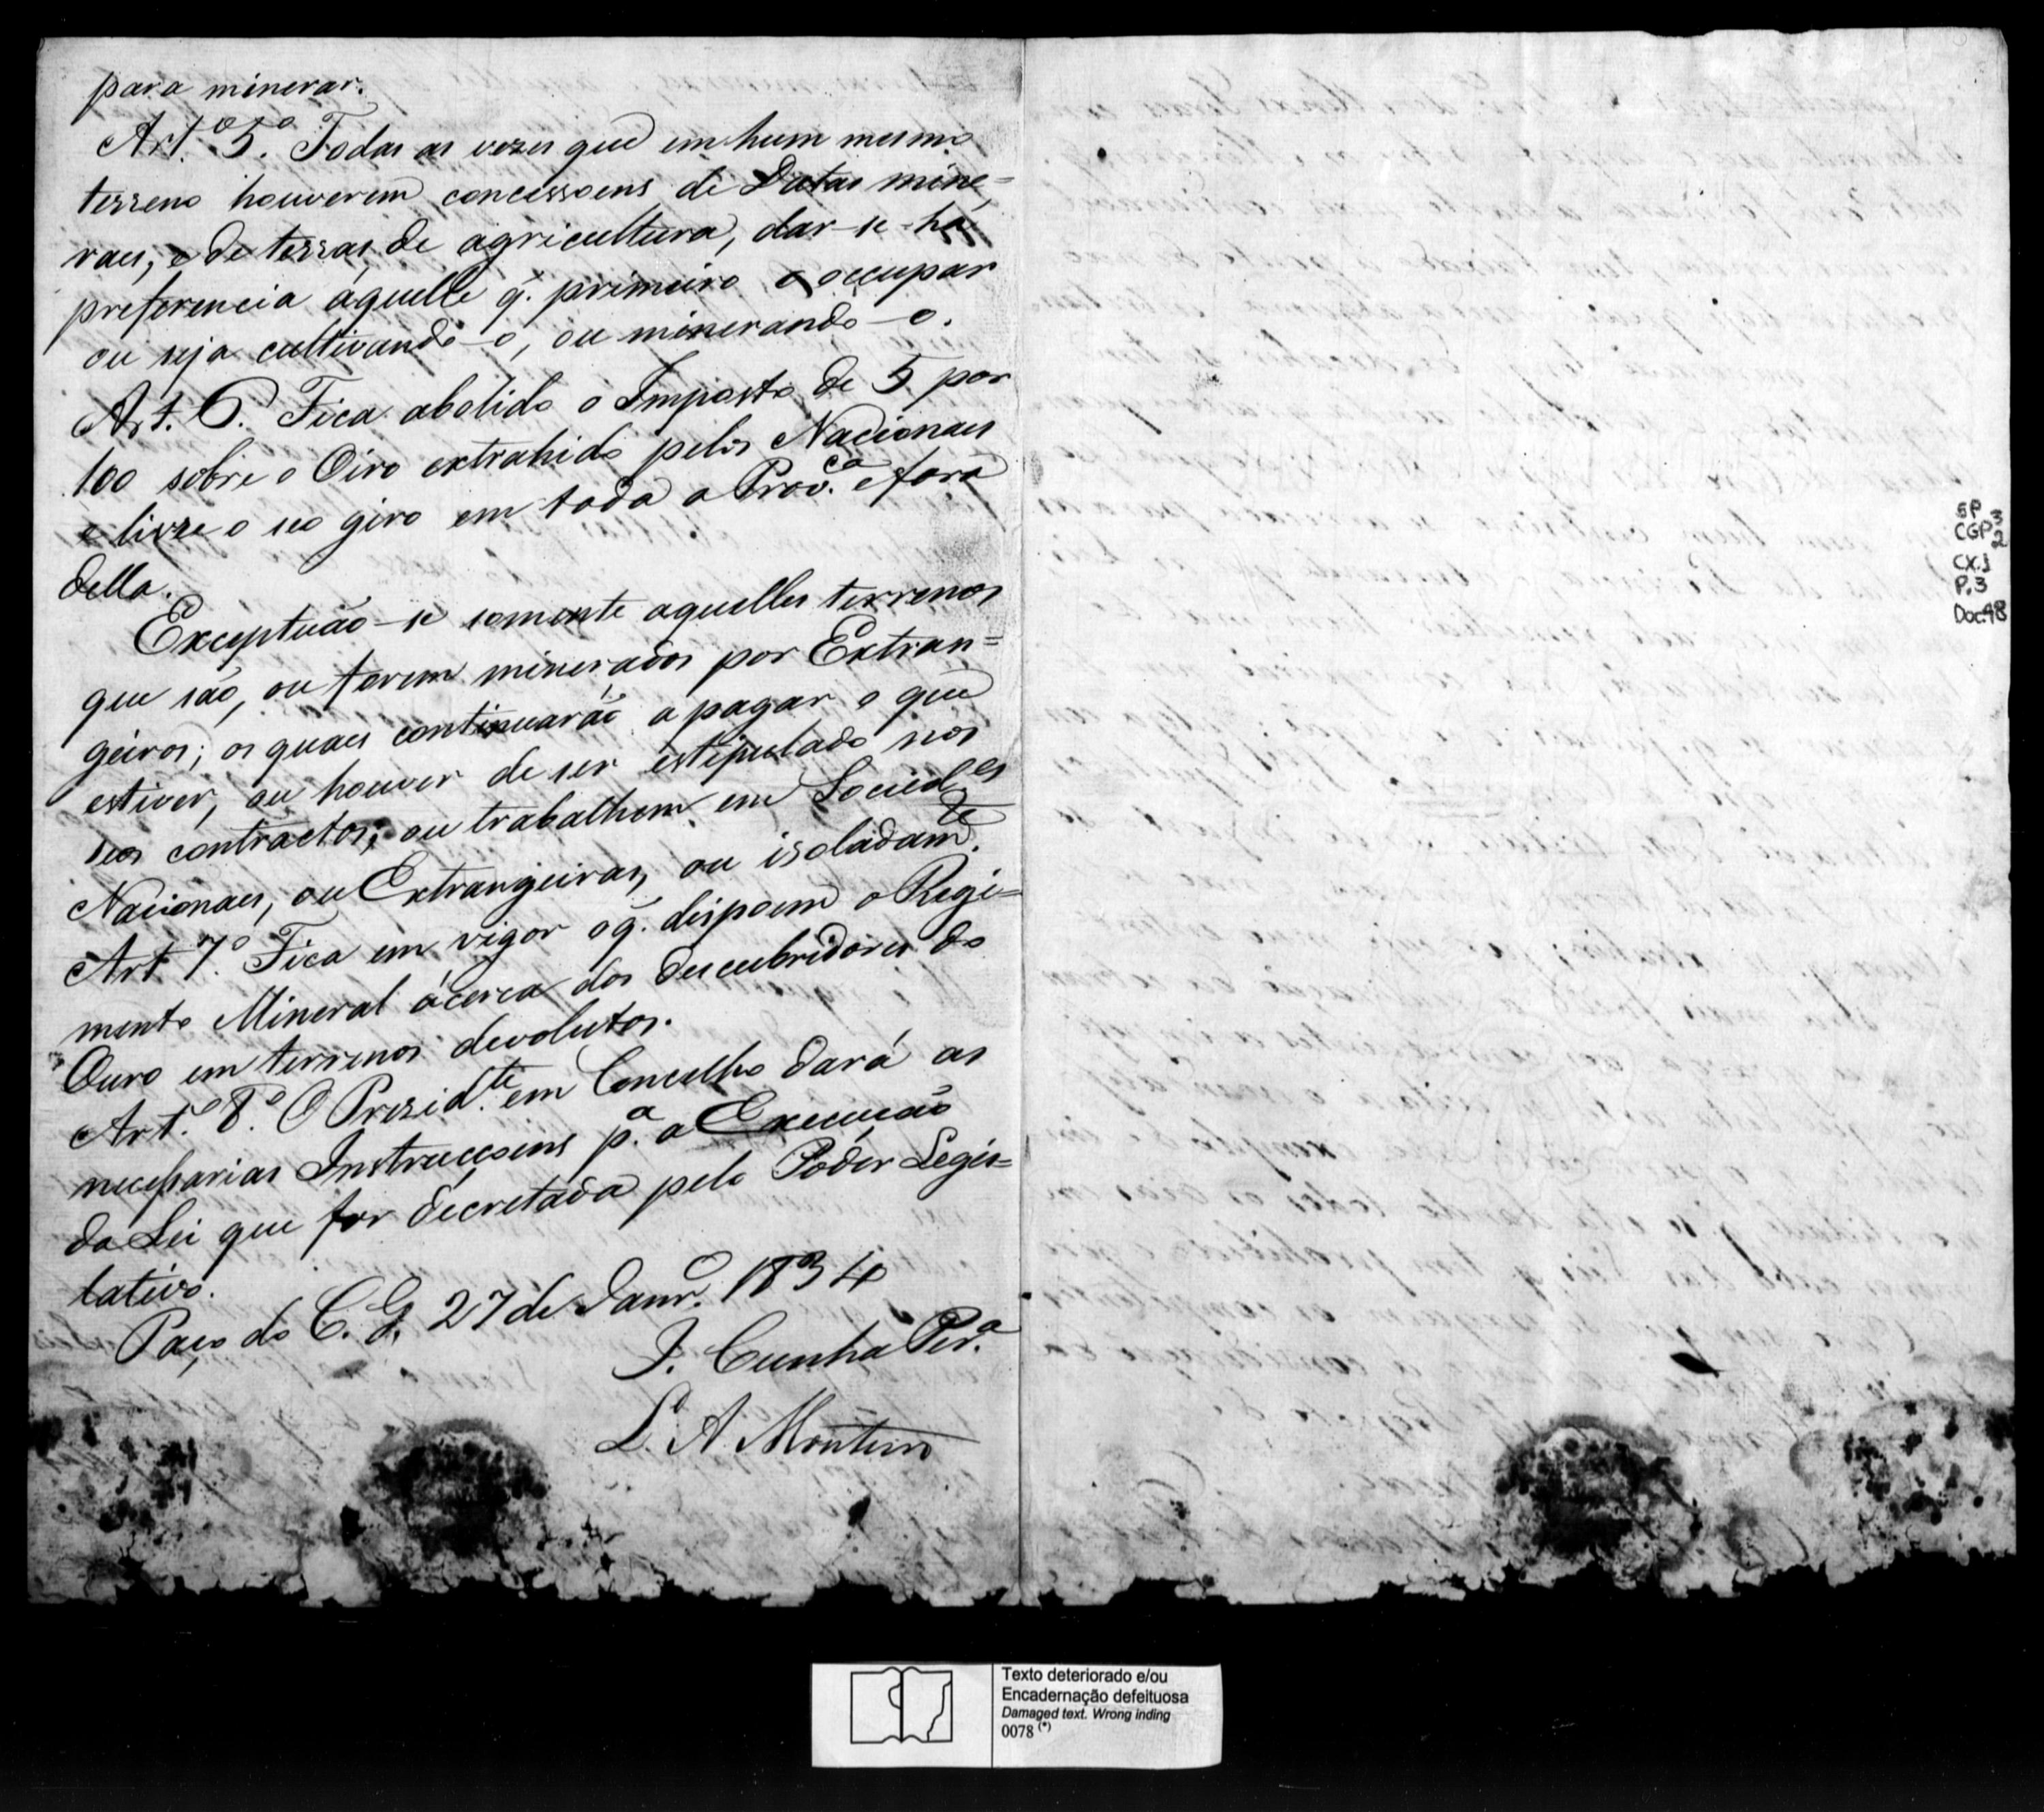 para minerar.
Art.º 5.º Todas as vezes que em hum mesmo
terreno houverem concessoens de Datas mine=
raes, e de terras de agricultura, dar-se-há
preferencia áquelle q̃. primeiro o occupar
ou seja cultivando-o, ou minerando-o.
Art. 6.º Fica abolido o Imposto de 5 por
100 sobre o Oiro extrahido pelos Nacionaes
e livre o seo giro em toda a Prov.ca e fora
della.
Exceptuão-se somente aquelles terrenos
que são, ou forem minerados por Extran=
geiros; os quaes continuarão a pagar o que
estiver, ou houver de ser estipulado nos
seos contractos; ou trabalhem em Socied.es
Nacionaes, ou Extrangeiras, ou isoladam.te
Art. 7.º Fica em vigor o q̃. dispoem o Regi=
mento Mineral ácerca dos descubridores do
Ouro em terrenos devolutos.
Art.º 8.º O Prezid.te em Concelho dará as
necessarias Instrucçoens p.a a Execução
da Lei que for decretada pelo Poder Legis=
lativo.
Paço do C. G. 27 de Janr.o 1834
J. Cunha Per.a
L. A. Monteiro
SP 3
CGP 2
CX.1
P.3
Doc.98
Texto deteriorado e/ou
Encadernação defeituosa
Damaged text. Wrong inding
0078 (*)